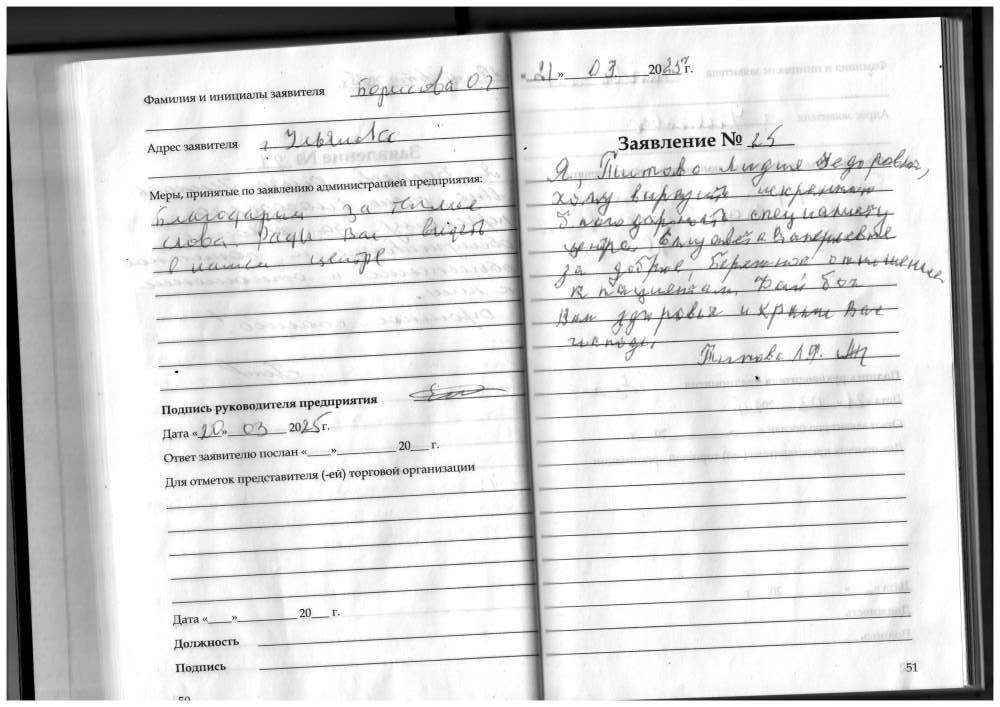 Фамилия и инициалы заявителя Борисова О.Г
Адрес заявителя г Ульяновск
Меры, принятые по заявлению администрацией предприятия:
Благодарим за теплые
слова. Рады Вас видеть
в нашем центре
Подпись руководителя предприятия
Дата «20» 03 2025г.
Ответ заявителю послан «___»__________ 20___ г.
Для отметок представителя (-ей) торговой организации
Дата «____»__________ 20___ г.
Должность
Подпись
50
«21» 03 2025г.
Заявление № 25
Я, Титова Лидия Федоровна,
хочу выразить искреннюю
благодарность специалисту
центра Елизавета Валерьевне
за доброе, бережное отношение
к пациентам. Дай бог
Вам здоровья и храни Вас
господь.
Титова Л.Ф.
51